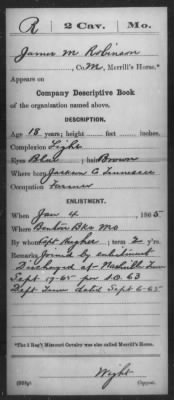 R 2 Cav. Mo.
James M Robinson
, Co. M, Merrill's Horse.*
Appears on
Company Descriptive Book
of the organization named above.
DESCRIPTION.
Age 18 years; height feet inches.
Complexion Light
Eyes Blue ; hair Brown
Where born Jackson C Tennessee
Occupation Farmer
ENLISTMENT.
When Jan 4 , 1865
Where Benton Bks Mo
By whom Capt ; term 2 y'rs.
Remarks Joined by enlistment
Discharged at Nashville Tenn
Sept 19-65 per S.O. 63
Dept Tenn dated Sept 6-65
*The 2 Reg't Missouri Cavalry was also called Merrill's Horse.
Wight
Copyist.